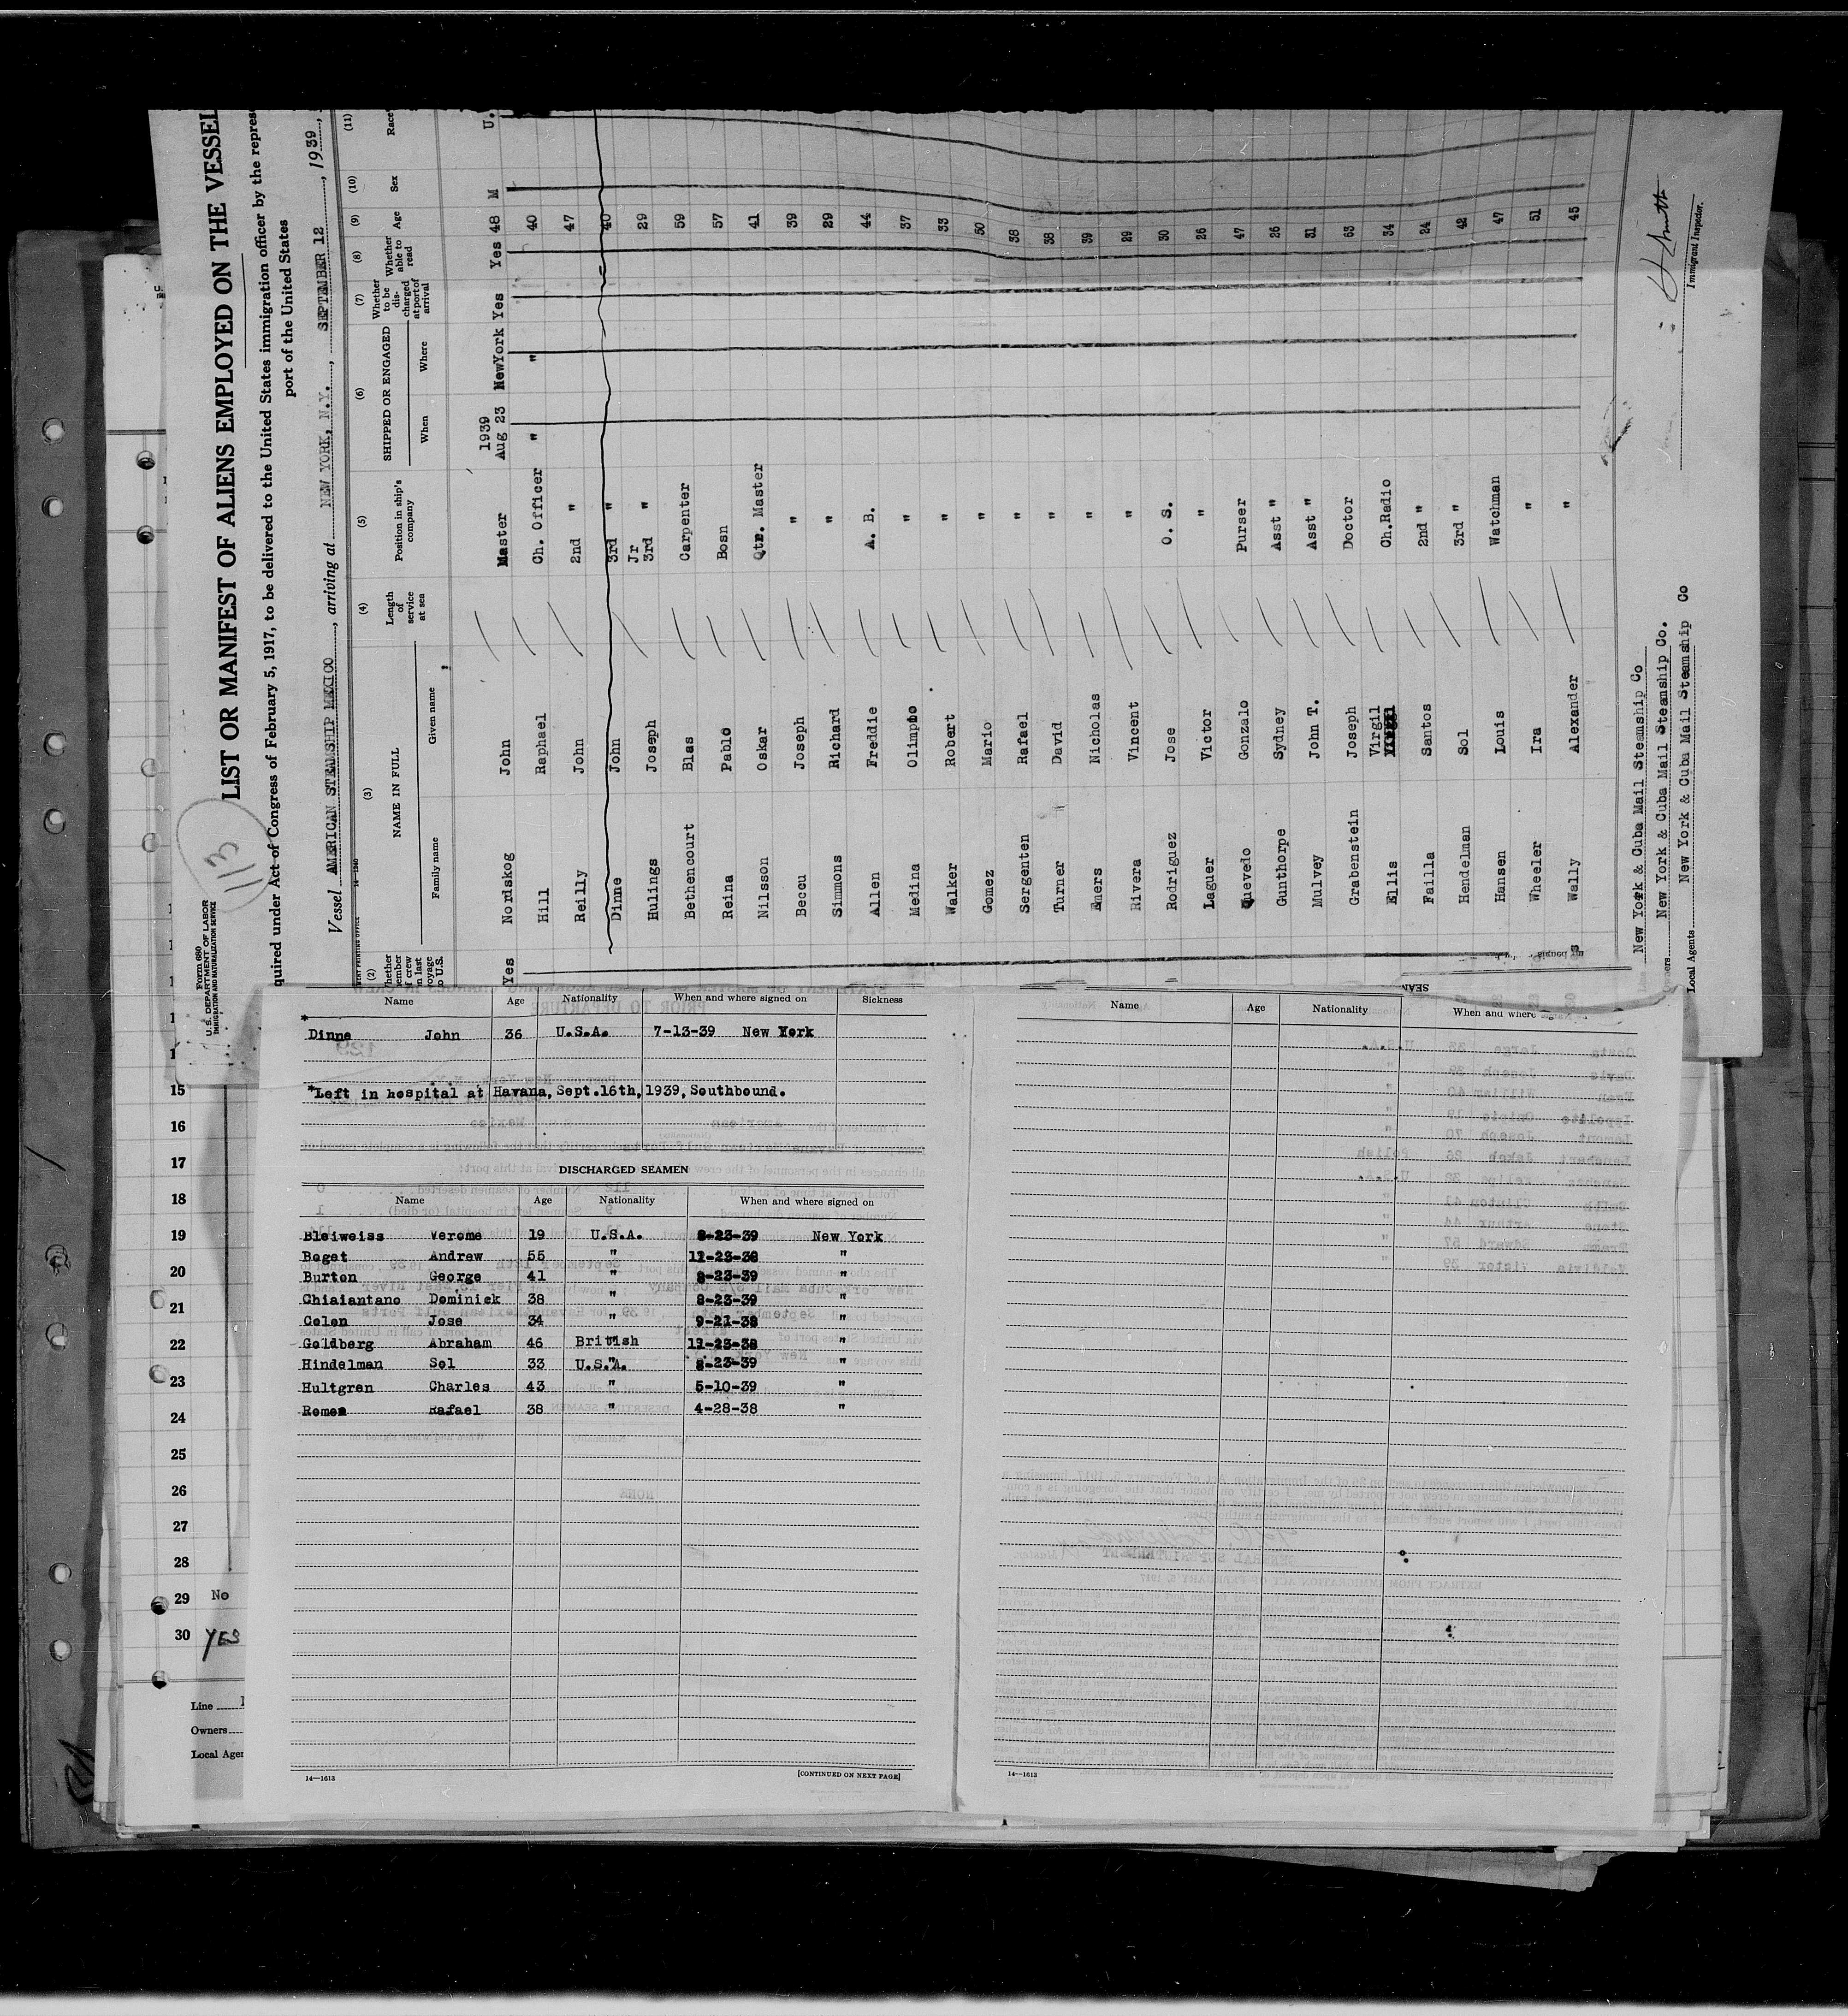 Form 680
U.S. DEPARTMENT OF LABOR
IMMIGRATION AND NATURALIZATION SERVICE
113
LIST OR MANIFEST OF ALIENS EMPLOYED ON THE VESSEL
quired under Act of Congress of February 5, 1917, to be delivered to the United States immigration officer by the repres
port of the United States
Vessel AMERICAN STEAMSHIP MEXICO, arriving at NEW YORK, N.Y., SEPTEMBER 12, 1939,
(2) (3) (4) (5) (6) (7) (8) (9) (10) (11)
NAME IN FULL Length of service at sea Position in ship's company SHIPPED OR ENGAGED Whether to be discharged at port of arrival Whether able to read Age Sex Race
Family name Given name When Where
1939
Yes Nordskog John Master Aug 23 NewYork Yes Yes 48 M U.
Hill Raphael Ch. Officer " " 40
Reilly John 2nd " 47
Dinne John 3rd " 40
Hulings Joseph Jr 3rd " 29
Bethencourt Blas Carpenter 59
Reina Pablo Bosn 57
Nilsson Oskar Qtr. Master 41
Beccu Joseph " 39
Simmons Richard " 29
Allen Freddie A. B. 44
Medina Olimpio " 37
Walker Robert " 33
Gomez Mario " 50
Sergenten Rafael " 38
Turner David " 38
Amers Nicholas " 39
Rivera Vincent " 29
Rodriguez Jose O. S. 30
Laguer Victor " 26
Quevedo Gonzalo Purser 47
Gunthorpe Sydney Asst " 26
Mulvey John T. Asst " 31
Grabenstein Joseph Doctor 63
Ellis Virgil Ch.Radio 34
Failla Santos 2nd " 24
Hendelman Sol 3rd " 42
Hansen Louis Watchman 47
Wheeler Ira " 51
Wally Alexander " 45
New York & Cuba Mail Steamship Co
New York & Cuba Mail Steamship Co.
Local Agents New York & Cuba Mail Steamship Co
Immigrant Inspector.
Name Age Nationality When and where signed on Sickness
*
Dinne John 36 U.S.A. 7-13-39 New York
*Left in hospital at Havana, Sept.16th, 1939, Southbound.
DISCHARGED SEAMEN
Name Age Nationality When and where signed on
Bleiweiss Verome 19 U.S.A. 8-23-39 New York
Boget Andrew 55 " 11-23-38 "
Burton George 41 " 8-23-39 "
Chiaiantano Dominick 38 " 8-23-39 "
Colon Jose 34 " 9-21-38 "
Goldberg Abraham 46 British 11-23-38 "
Hindelman Sol 33 U.S.A. 8-23-39 "
Hultgren Charles 43 " 5-10-39 "
Romea Rafael 38 " 4-28-38 "
14—1613 [CONTINUED ON NEXT PAGE]
Name Age Nationality When and where
14—1613
15
16
17
18
19
20
21
22
23
24
25
26
27
28
29 No
30 YES
Line
Owners
Local Agen